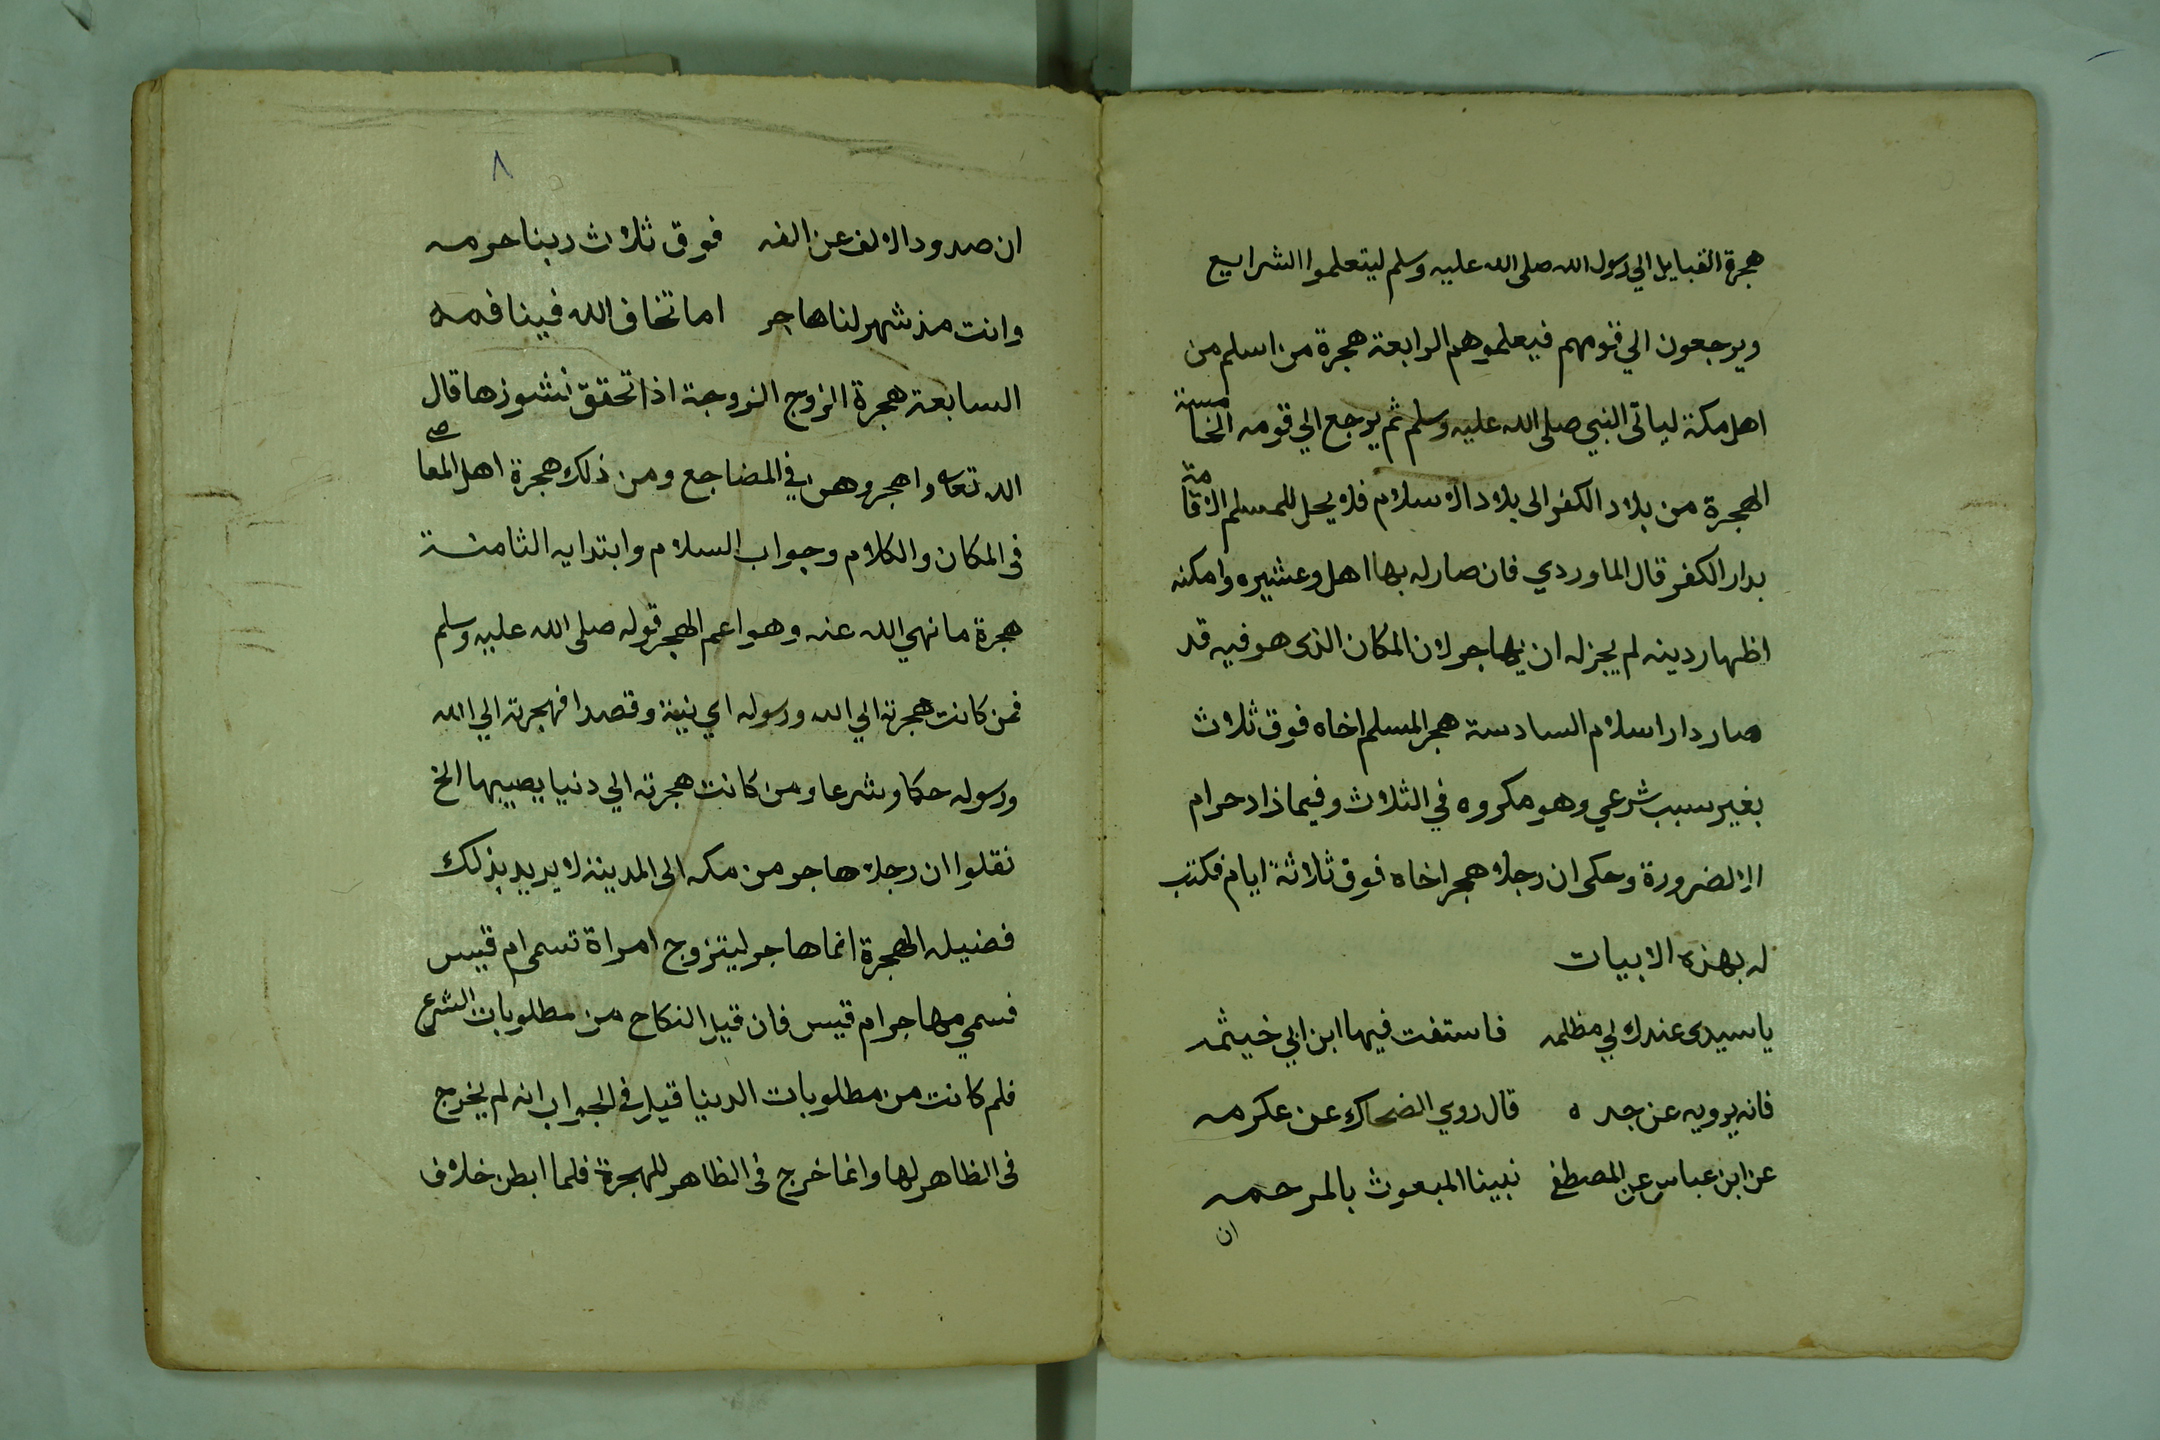 هجرة القبايل الي رسول الله صلى الله عليه وسلم ليتعلموا الشرايع
ويرجعون الي قومهم فيعلموهم الرابعة هجرة من اسلم من
اهل مكة لياتى النبي صلى الله عليه وسلم ثم يرجع الي قومه الخامسة
الهجرة من بلاد الكفر الى بلاد الاسلام فلا يحل للمسلم الاقامة
بدار الكفر قال الماوردي فان صار له بها اهل وعشيره وامكنه
اظهار دينه لم يجز له ان يهاجر لان المكان الذى هو فيه قد
صار دار اسلام السادسة هجر المسلم اخاه فوق ثلاث
بغير سبب شرعي وهو مكروه في الثلاث وفيما زاد حرام
الا لضرورة وحكى ان رجلا هجر اخاه فوق ثلاثة ايام فكتب
له بهذه الابيات
يا سيدى عندك لي مظلمه فاستفت فيها ابن ابي خيثمه
فانه يرويه عن جده قال روي الضحاك عن عكرمه
عن ابن عباس عن المصطفى نبينا المبعوث بالمرحمه
ان
٨
ان صدود الالف عن الفه فوق ثلاث ربنا حرمه
وانت مذ شهر لنا هاجر اما تخاف الله فينا فمه
السابعة هجرة الزوج الزوجة اذا تحقق نشوزها قال
الله تعالى واهجروهن في المضاجع ومن ذلك هجرة اهل المعاصي
فى المكان والكلام وجواب السلام وابتدايه الثامنة
هجرة ما نهي الله عنه وهو اعم الهجر قوله صلى الله عليه وسلم
فمن كانت هجرته الي الله ورسوله اي نية وقصدا فهجرته الي الله
ورسوله حكما وشرعا ومن كانت هجرته الي دنيا يصيبها الخ
نقلوا ان رجلا هاجر من مكه الى المدينة لا يريد بذلك
فضيله الهجرة انما هاجر ليتزوج امراة تسمى ام قيس
فسمي مهاجر ام قيس فان قيل النكاح من مطلوبات الشرع
فلم كانت من مطلوبات الدنيا قيل في الجواب انه لم يخرج
فى الظاهر لها وانما خرج فى الظاهر للهجرة فلما ابطن خلاف